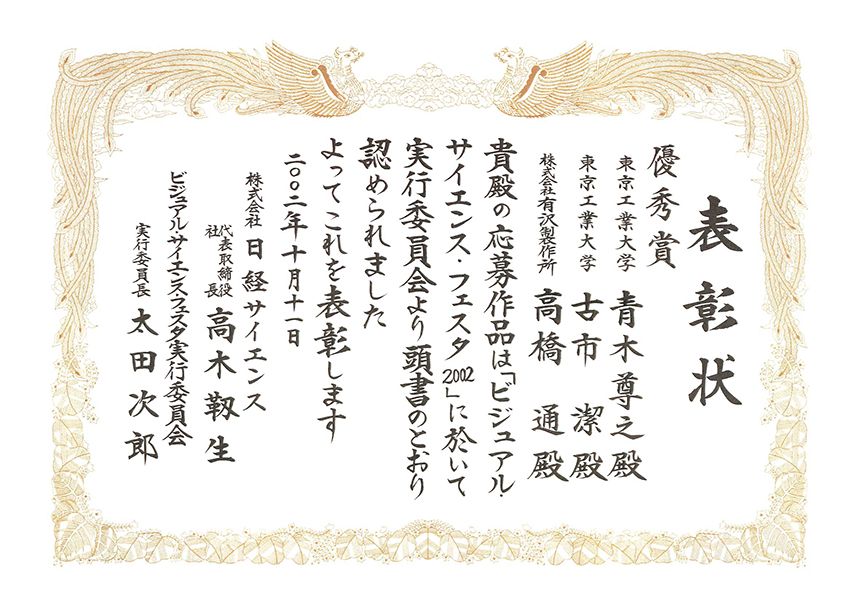 表彰状
優秀賞
東京工業大学 青木尊之殿
東京工業大学 古市 潔殿
株式会社有沢製作所 高橋 通殿
貴殿の応募作品は「ビジュアル・
サイエンス・フェスタ2002」に於いて
実行委員会より頭書のとおり
認められました
よってこれを表彰します
二〇〇二年十月十一日
株式会社 日経サイエンス
代表取締役社長 高木靱生
ビジュアルサイエンス・フェスタ実行委員会
実行委員長 太田次郎